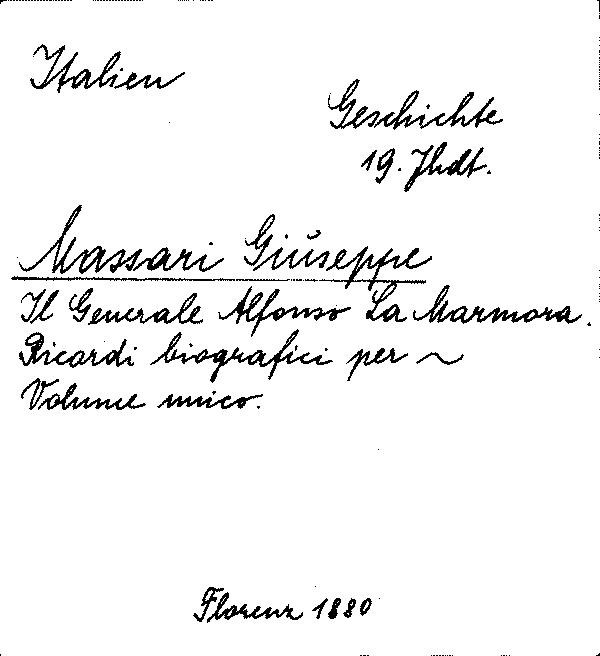 Italien
Geschichte
19. Jhdt.
Massari Giuseppe
Il Generale Alfonso La Marmora.
Ricordi biografici per ~
Volume unico.
Florenz 1880